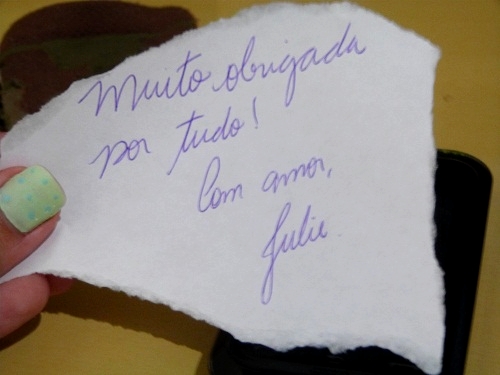 Muito obrigada
por tudo!
Com amor,
Julie